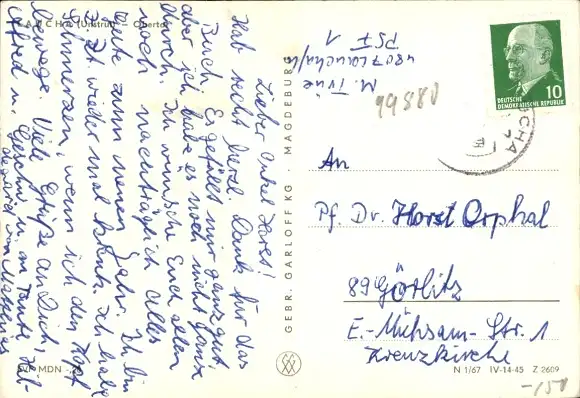 LAUCHA (Unstrut) — Obertor
Lieber Onkel Horst!
Hab recht herzl. Dank für das
Buch. Es gefällt mir ganz gut,
aber ich habe es noch nicht ganz
durch. Ich wünsche Euch allen
noch nachträglich alles
Gute zum neuen Jahr. Ich bin
z. Zt. wieder mal krank. Ich habe
Schmerzen, wenn ich den Kopf
bewege. Viele Grüße an Dich,
u. an Tante
von Matthias
EVP MDN
GEBR. GARLOFF KG · MAGDEBURG
M. Trüe
4807 Laucha/U
PSF 1
99880
10
DEUTSCHE
DEMOKRATISCHE REPUBLIK
UCHA
An
Pf. Dr. Horst Orphal
89 Görlitz
E.-Mühsam-Str. 1
Kreuzkirche
N 1/67 IV-14-45 Z 2609
-150